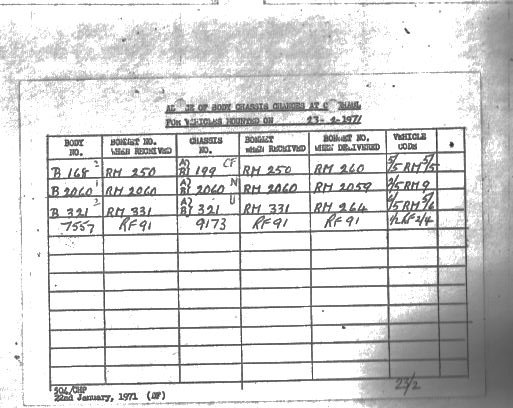 OF BODY CHASSIS CHANGES AT
FOR VEHICLES MOUNTED ON 23-2-1971
BODY NO. BONNET NO. WHEN RECEIVED CHASSIS NO. BONNET WHEN RECEIVED BONNET NO. WHEN DELIVERED VEHICLE CODE
B 168 2 RM 250 A) B) 199 CF RM 250 RM 260 5/5 RM 5/5
B 2060 1 RM 2060 A) B) 2060 N RM 2060 RM 2059 RM 9
B 321 2 RM 331 A) B) 321 U RM 331 RM 264 RM
7557 RF 91 9173 RF 91 RF 91 1/2 RF 2/4
504/CHP
22nd January, 1971 (DF)
23/2